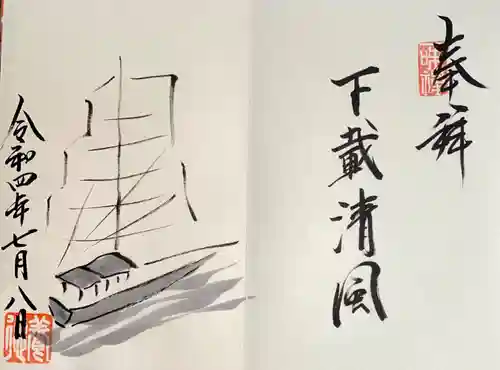 奉拝
下載清風
令和四年七月八日